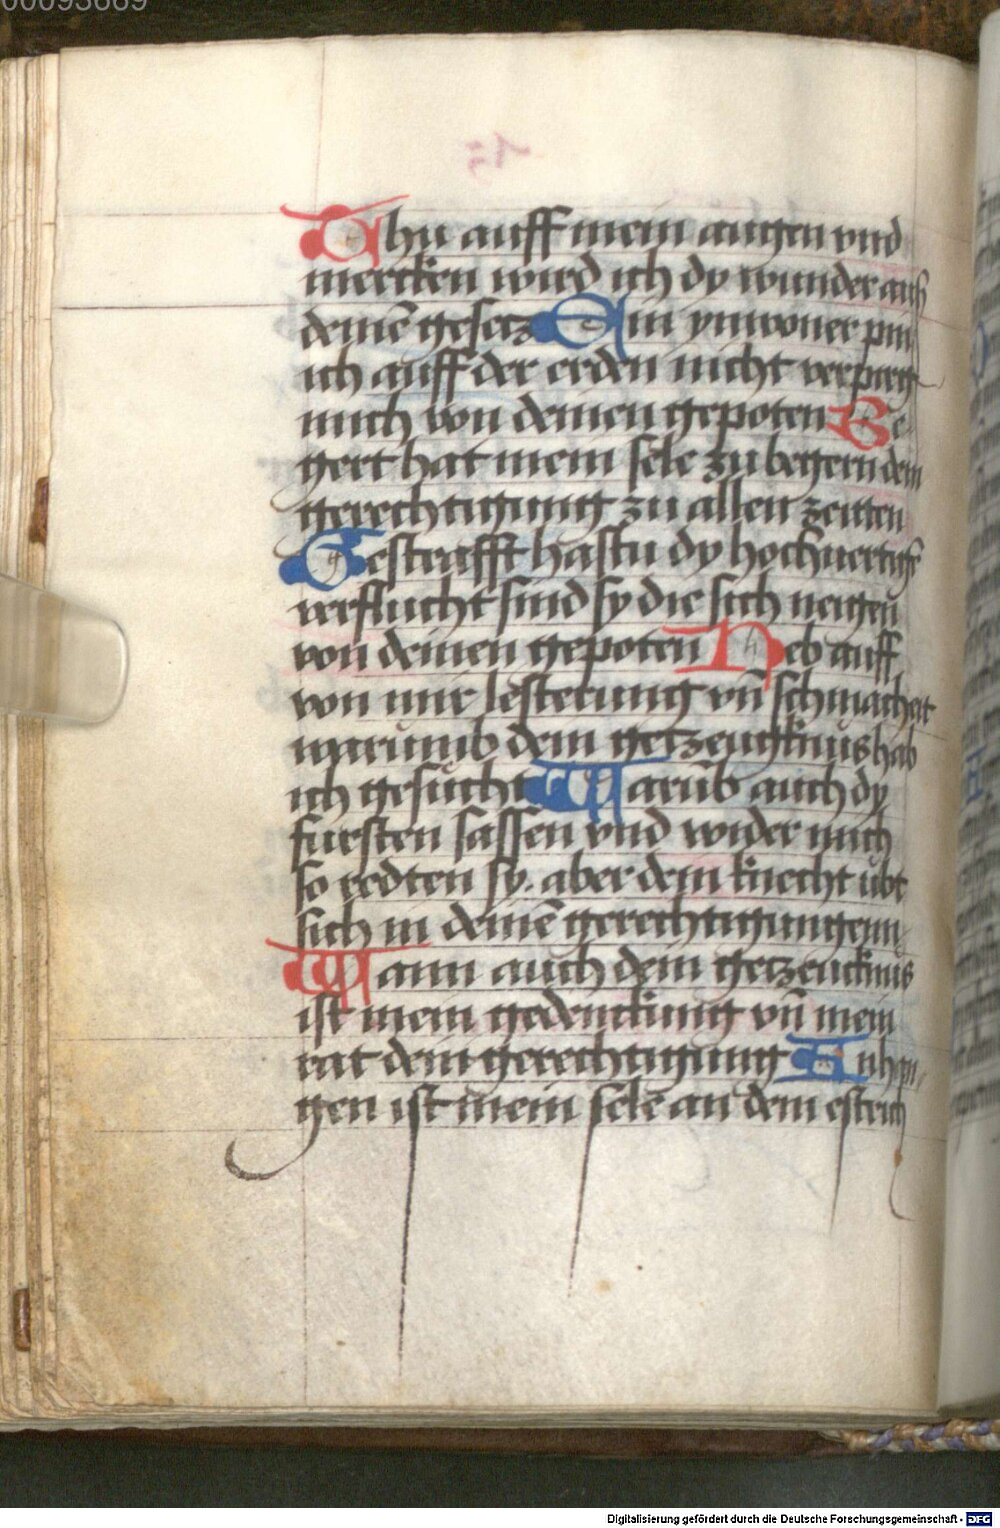 00093669
Thu auff mein augen vnd
mercken wird ich dy wunder auß
deinē gesetz Ein ynwoner pin
ich auff der erden nicht verpirg
mich von deinen gepoten Be
gert hat mein sele zu begern dein
gerechtigung zu allen zeiten
Gestrafft hastu dy hochuertigē
verflucht sind sy die sich neigen
von deinen gepoten Heb auff
von mir lesterung vn̄ schmachait
warumb dein getzeugknus hab
ich gesucht Warūb auch dy
fursten sassen vnd wider mich
so redten sy. aber dein knecht ubt
sich in deinē gerechtigungenn
Wann auch dein getzeucknus
ist mein gedenckung vn̄ mein
rat dein gerechtigung Anhan
gen ist mein sele an dem estrich
Digitalisierung gefördert durch die Deutsche Forschungsgemeinschaft - DFG